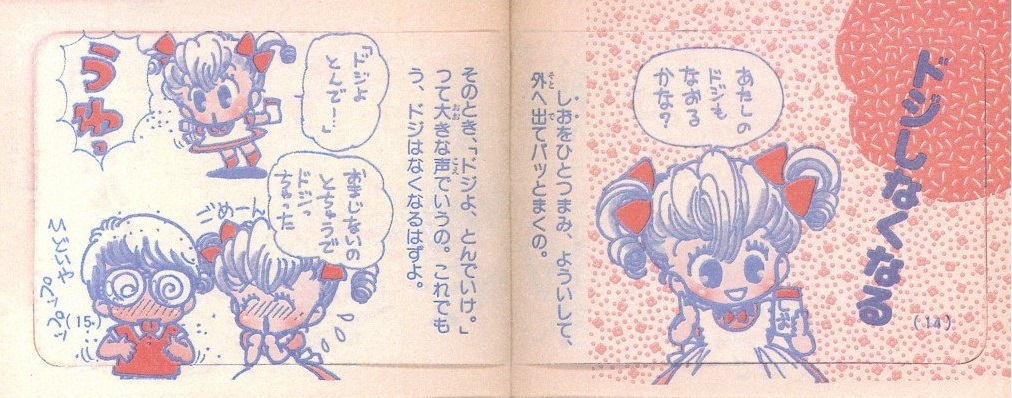 ドジしなくなる
(14)
あたしの
ドジも
なおる
かな?
しお
しおをひとつまみ、よういして、
外へ出てパッとまくの。
そのとき、「ドジよ、とんでいけ。」
って大きな声でいうの。これでも
う、ドジはなくなるはずよ。
「ドジよ
とんで…!」
おまじないの
とちゅうで
ドジっ
ちゃった
ごめーん
ひどいや
(15)